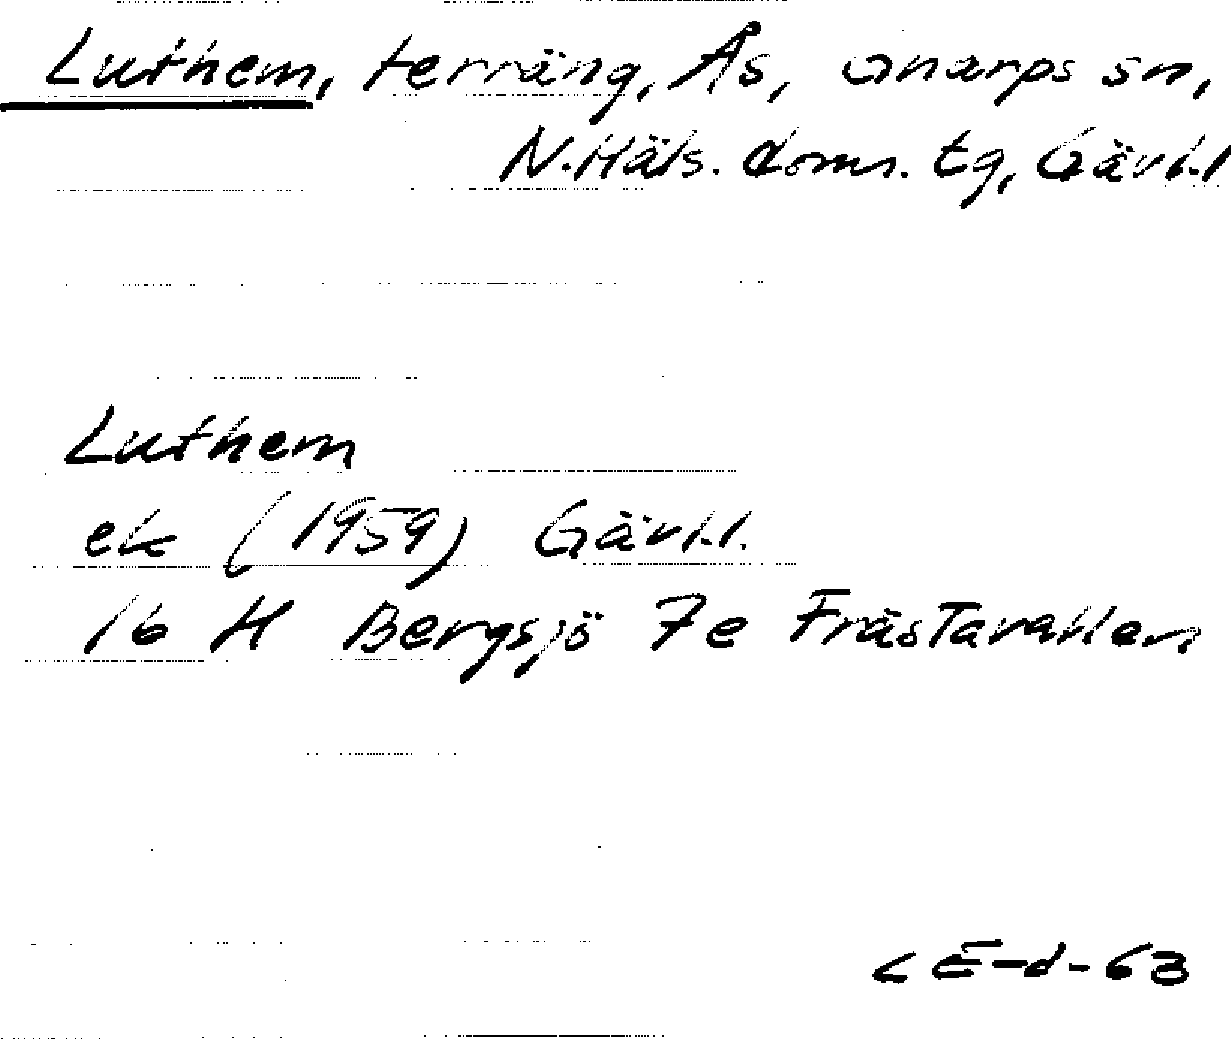 Luthem, terräng, Ås, Gnarps sn,
N.Häls. doms. tg, Gävl.l
Luthem
ek (1959) Gävl.l.
16 H Bergsjö 7e Frästavallen
CE-d-63